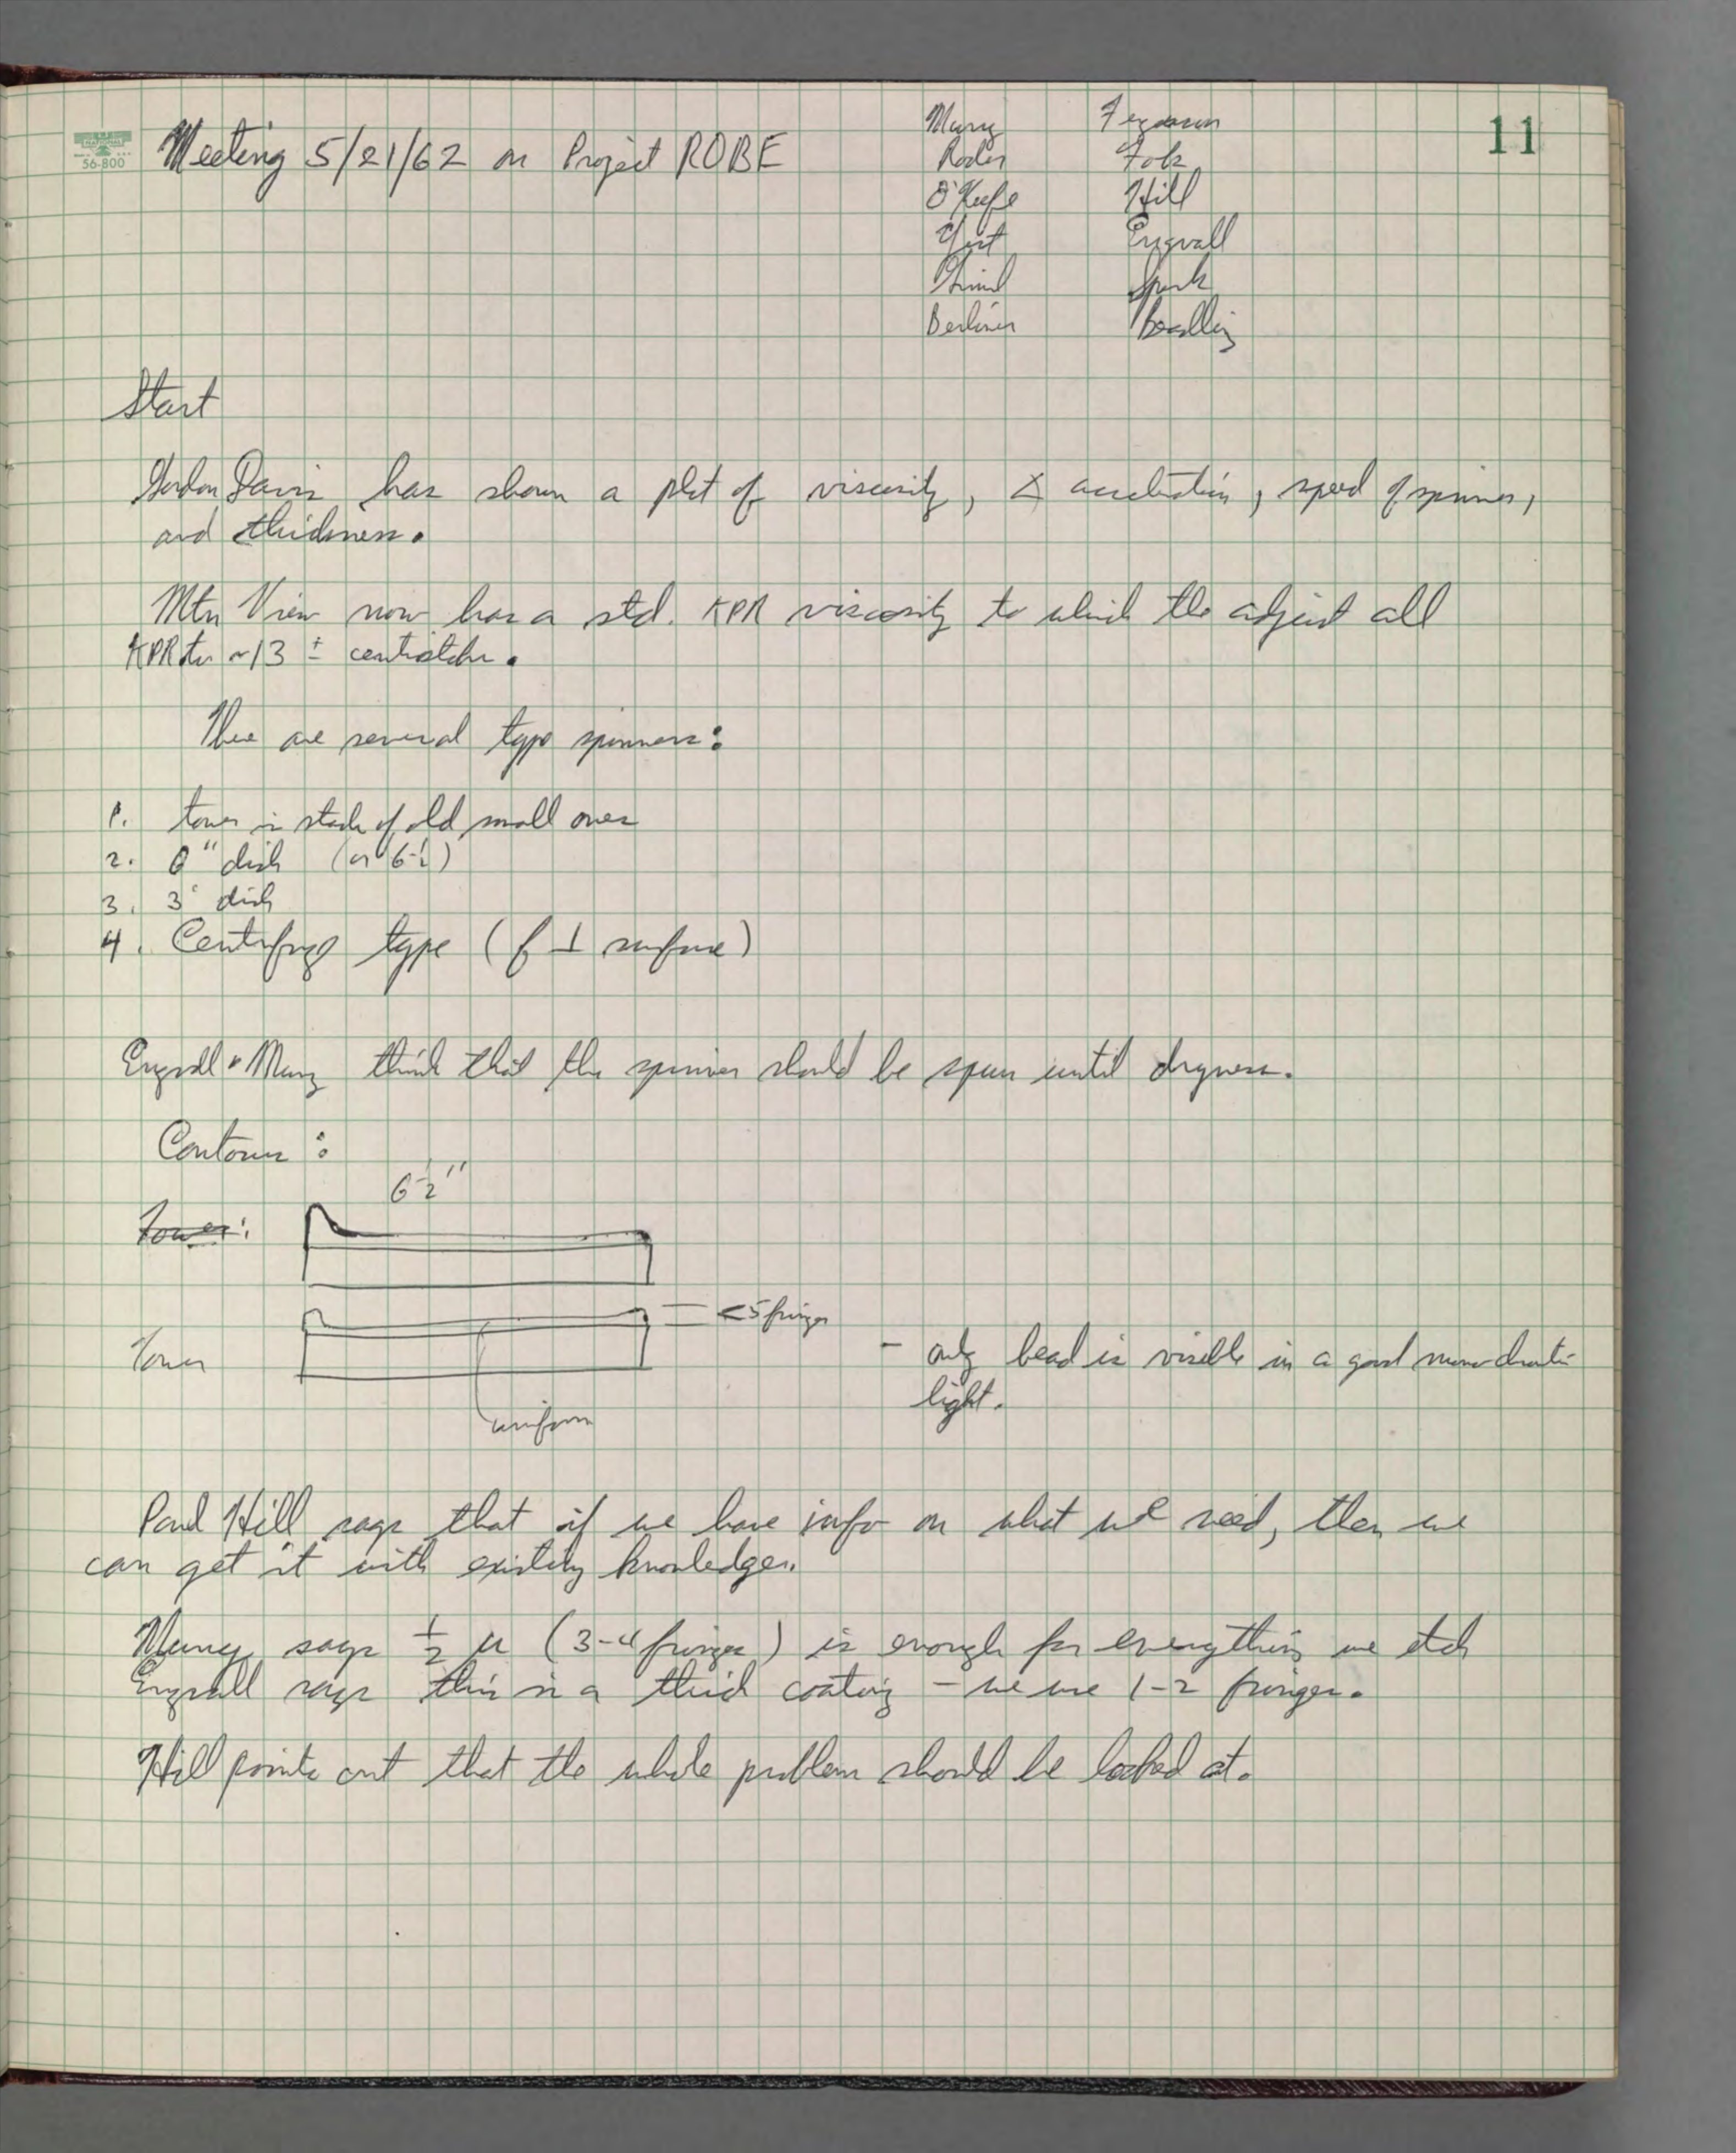 11
NATIONAL
56-800
Meeting 5/21/62 on Project ROBE
Murry Ferguson
O'Keefe Hill
Yost Engvall
Berliner
Start
Gordon Davis has shown a plot of viscosity, acceleration, speed of spinner,
and thickness.
Mtn View now has a std. KPR viscosity to which the adjust all
KPR to ~13 ±
There are several type spinners:
1. tower is stack of old small ones
2. 6" dish (or 6½)
3. 3" dish
4. Centrifuge type (f ⊥ surface)
Engvall & Murry think that the spinner should be spun until dryness.
Contours:
6½"
Tower:
<5 fringes
Tower
- only bead is visible in a good monochromatic
light.
uniform
Paul Hill says that if we have info on what we need, then we
can get it with existing knowledge.
Murry says ½ µ (3-4 fringes) is enough for everything we etch
Engvall says this is a thick coating - we use 1-2 fringes.
Hill points out that the whole problem should be looked at.